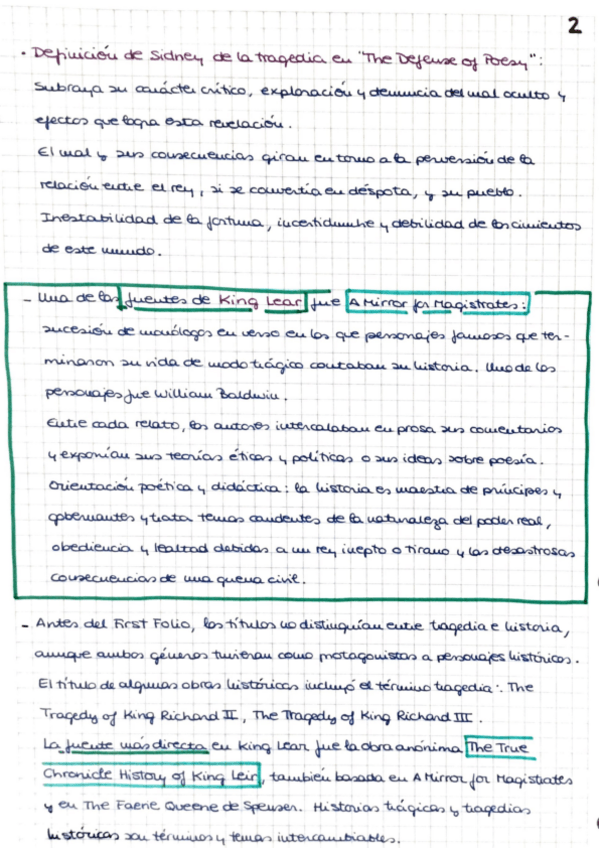 2
· Definición de Sidney de la tragedia en "The Defense of Poesy":
Subraya su carácter crítico, exploración y denuncia del mal oculto y
efectos que logra esta revelación.
El mal y sus consecuencias giran en torno a la perversión de la
relación entre el rey, si se convertía en déspota, y su pueblo.
Inestabilidad de la fortuna, incertidumbre y debilidad de los cimientos
de este mundo.
- Una de las fuentes de King Lear fue A Mirror for Magistrates:
sucesión de monólogos en verso en los que personajes famosos que ter-
minaron su vida de modo trágico contaban su historia. Uno de los
personajes fue William Baldwin.
Entre cada relato, los autores intercalaban en prosa sus comentarios
y exponían sus teorías éticas y políticas o sus ideas sobre poesía.
Orientación poética y didáctica: la historia es maestra de príncipes y
gobernantes y trata temas candentes de la naturaleza del poder real,
obediencia y lealtad debidas a un rey inepto o tirano y las desastrosas
consecuencias de una guerra civil.
- Antes del First Folio, los títulos no distinguían entre tragedia e historia,
aunque ambos géneros tuvieran como protagonistas a personajes históricos.
El título de algunas obras históricas incluyó el término tragedia: The
Tragedy of King Richard II, The Tragedy of King Richard III.
La fuente más directa en King Lear fue la obra anónima The True
Chronicle History of King Leir, también basada en A Mirror for Magistrates
y en The Faerie Queene de Spenser. Historias trágicas y tragedias
históricas son términos y temas intercambiables.